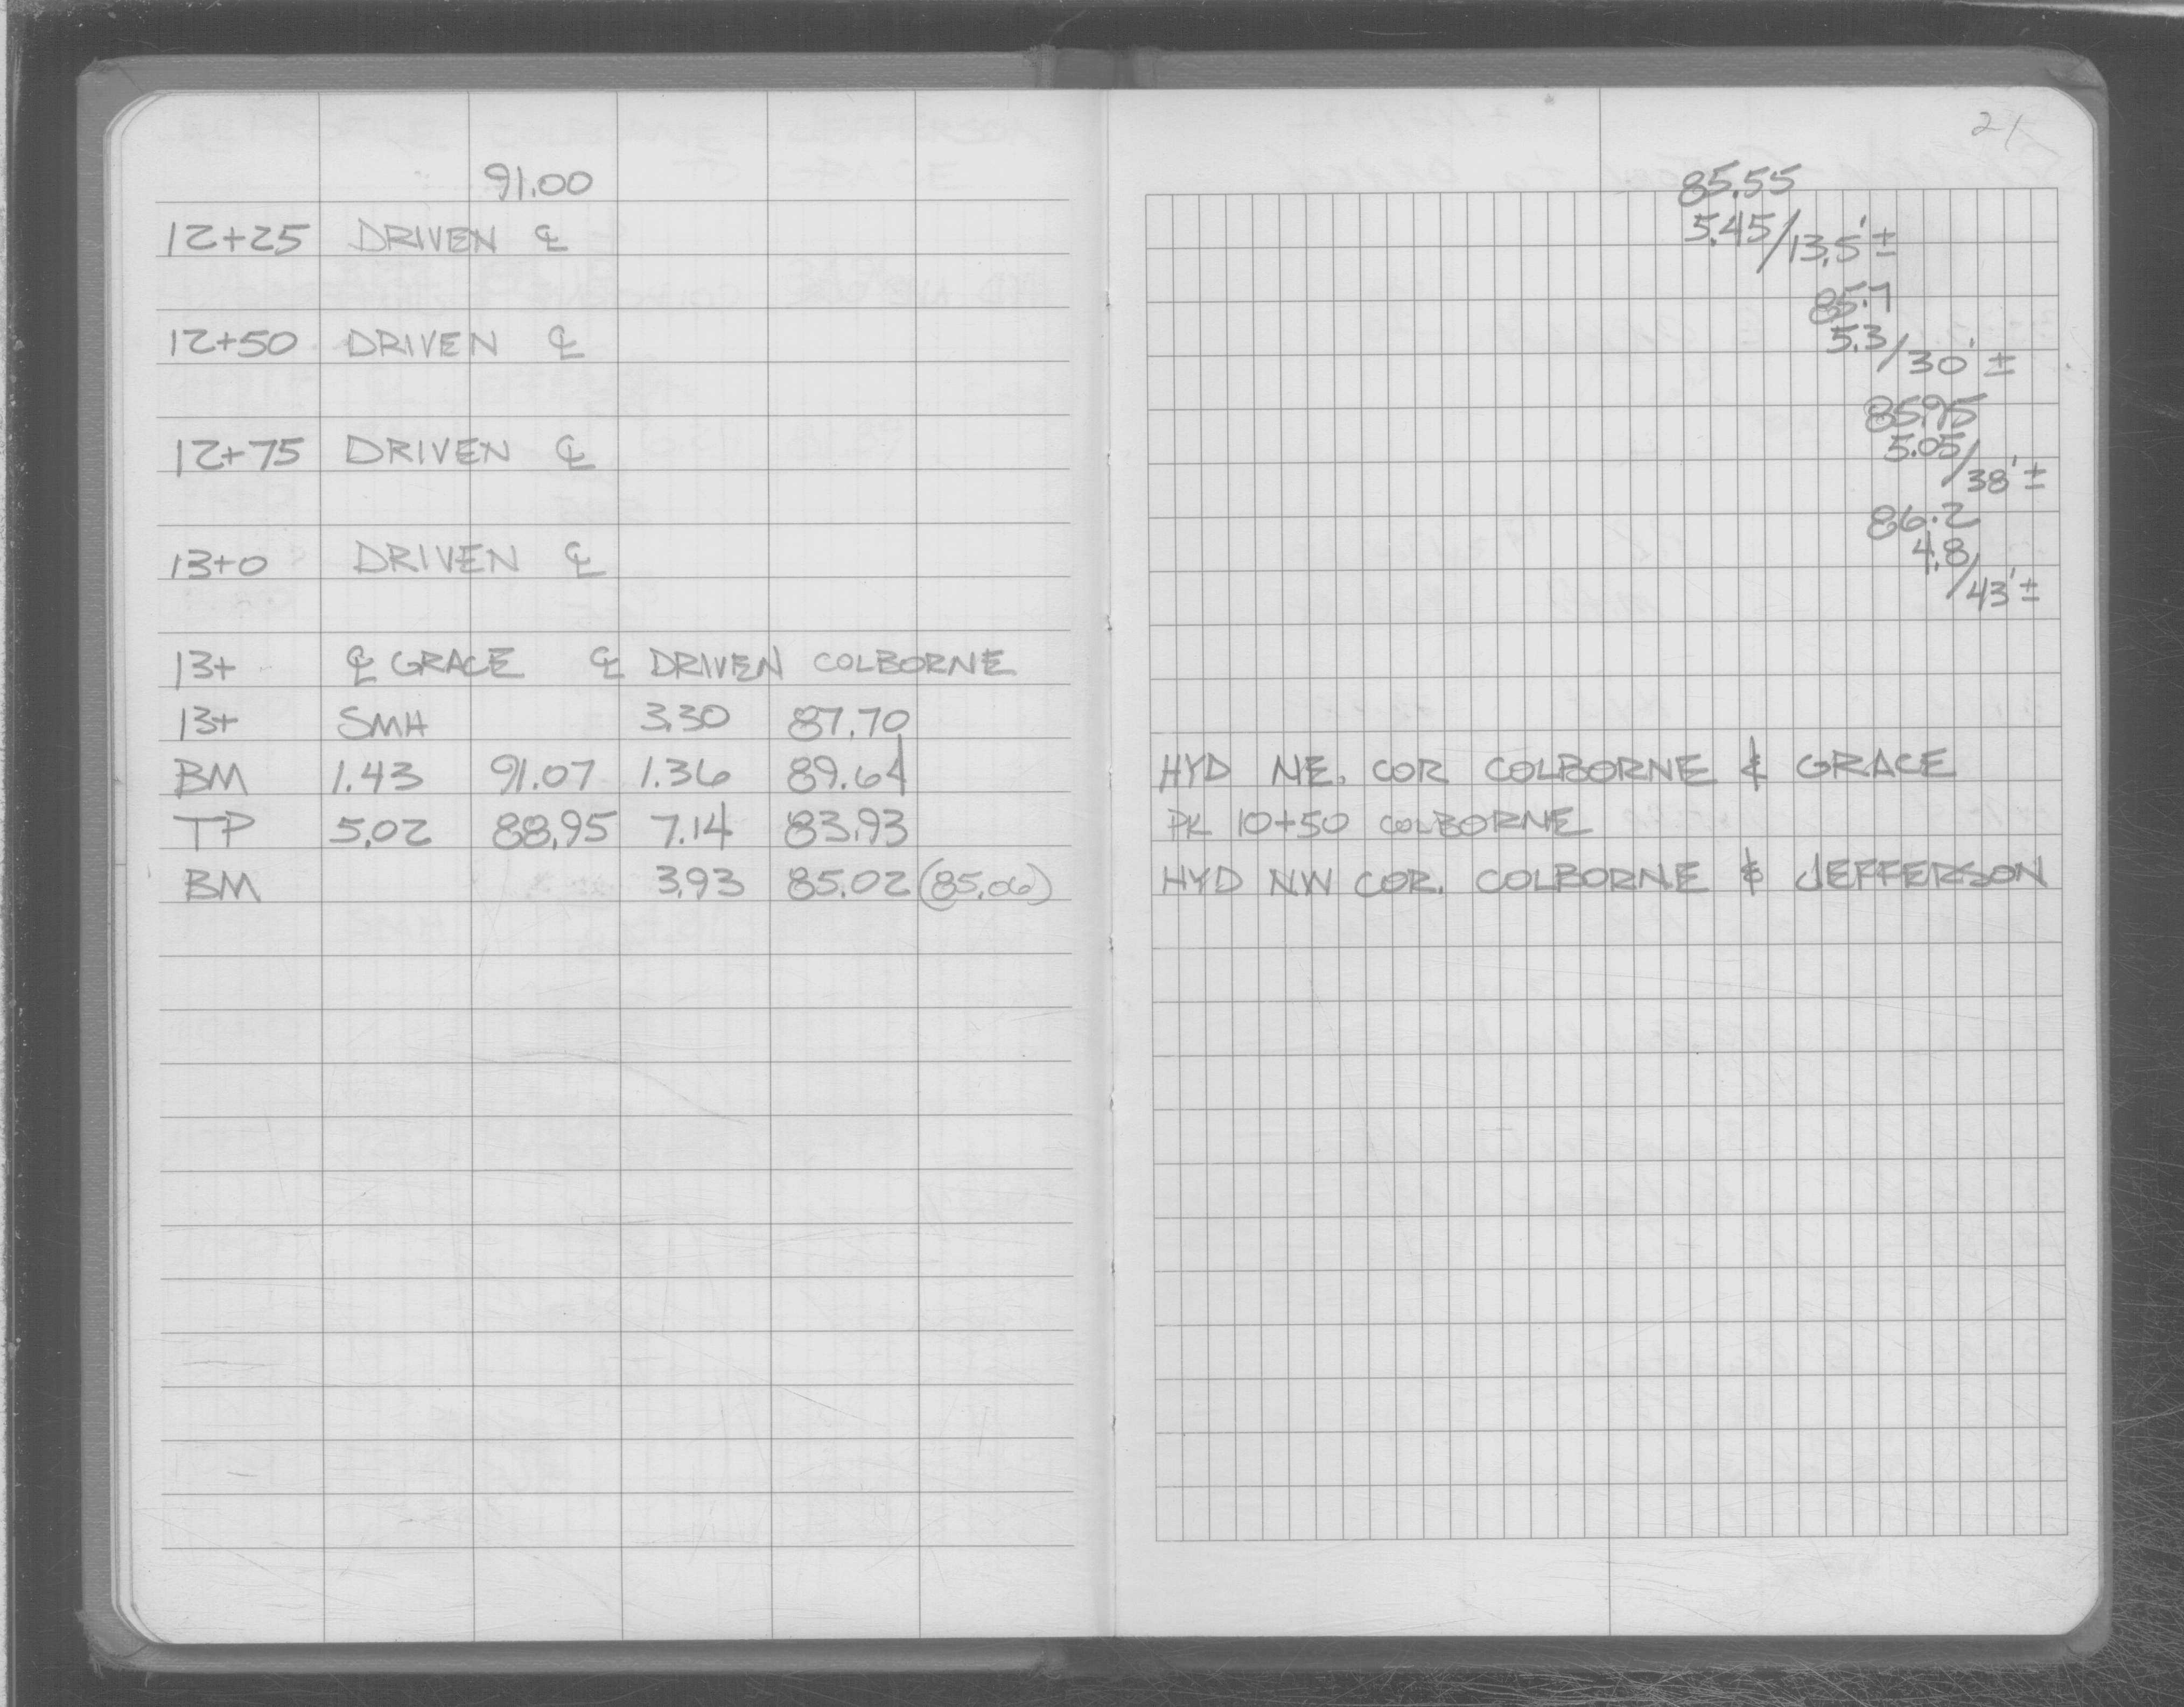 91.00
12+25 DRIVEN ℄
12+50 DRIVEN ℄
12+75 DRIVEN ℄
13+0 DRIVEN ℄
13+ ℄ GRACE ℄ DRIVEN COLBORNE
13+ SMH 3.30 87.70
BM 1.43 91.07 1.36 89.64
TP 5.02 88.95 7.14 83.93
BM 3.93 85.02 (85.06)
21
85.55
5.45/13.5'±
85.7
5.3/30'±
85.95
5.05/38'±
86.2
4.8/43'±
HYD NE. COR COLBORNE & GRACE
PK 10+50 COLBORNE
HYD NW COR. COLBORNE & JEFFERSON